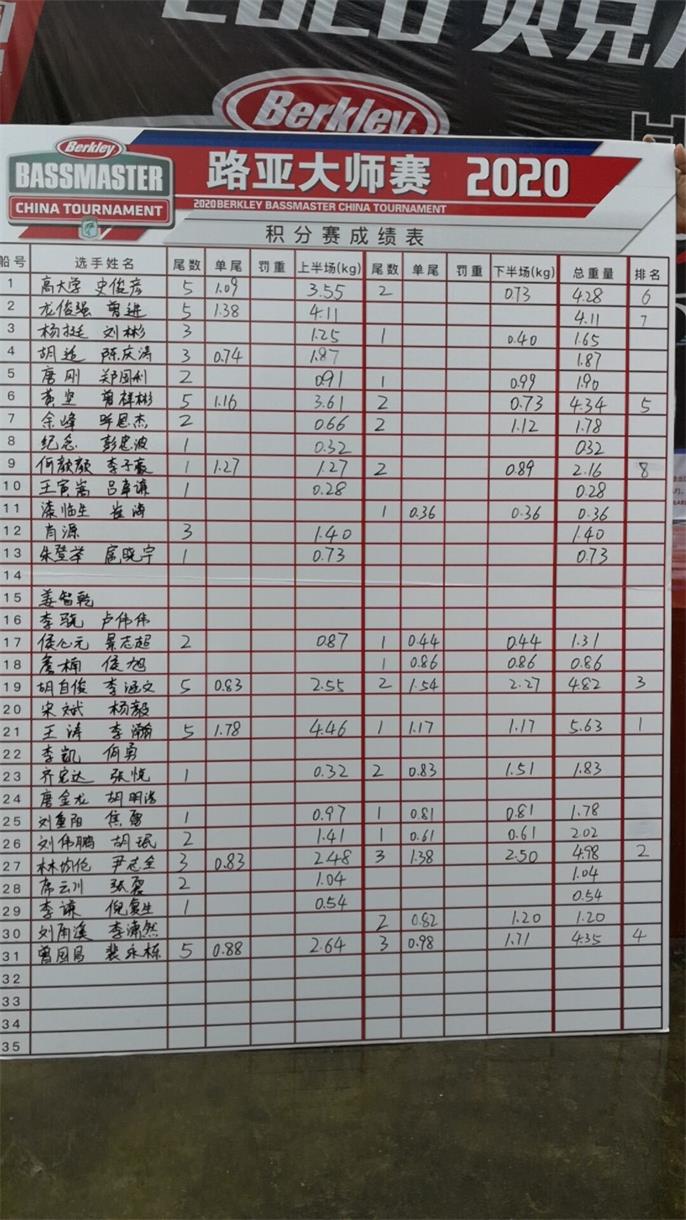 2020 贝克
Berkley
Berkley
BASSMASTER
CHINA TOURNAMENT
路亚大师赛 2020
2020 BERKLEY BASSMASTER CHINA TOURNAMENT
积分赛成绩表
船号 选手姓名 尾数 单尾 罚重 上半场(kg) 尾数 单尾 罚重 下半场(kg) 总重量 排名
1 高大学 史俊彦 5 1.09 3.55 2 0.73 4.28 6
2 龙俊强 曾进 5 1.38 4.11 4.11 7
3 杨挺 刘彬 3 1.25 1 0.40 1.65
4 胡 陈庆涛 3 0.74 1.87 1.87
5 唐刚 郑国利 2 0.91 1 0.99 1.90
6 黄坚 曾祥彬 5 1.16 3.61 2 0.73 4.34 5
7 余峰 思杰 2 0.66 2 1.12 1.78
8 纪念 彭忠波 1 0.32 032
9 何颜颜 李子豪 1 1.27 1.27 2 0.89 2.16 8
10 王寅嵩 吕 谦 1 0.28 0.28
11 漆临生 崔海 1 0.36 0.36 0.36
12 肖源 3 1.40 1.40
13 朱登举 扈晓宇 1 0.73 0.73
14
15 姜智乾
16 李骁 卢伟伟
17 侯心元 景志超 2 0.87 1 0.44 0.44 1.31
18 楠 侯旭 1 0.86 0.86 0.86
19 胡自俊 李涵文 5 0.83 2.55 2 1.54 2.27 4.82 3
20 宋斌 杨毅
21 王涛 李瀚 5 1.78 4.46 1 1.17 1.17 5.63 1
22 李凯 何勇
23 齐宏达 张悦 1 0.32 2 0.83 1.51 1.83
24 唐金龙 胡明浩
25 刘重阳 焦 1 0.97 1 0.81 0.81 1.78
26 刘伟鹏 胡珉 2 1.41 1 0.61 0.61 2.02
27 林均伦 尹志全 3 0.83 2.48 3 1.38 2.50 4.98 2
28 席云川 张磊 2 1.04 1.04
29 李谦 倪复生 1 0.54 0.54
30 刘雨溪 李潇然 2 0.82 1.20 1.20
31 曾国昌 裴永栋 5 0.88 2.64 3 0.98 1.71 4.35 4
32
33
34
35